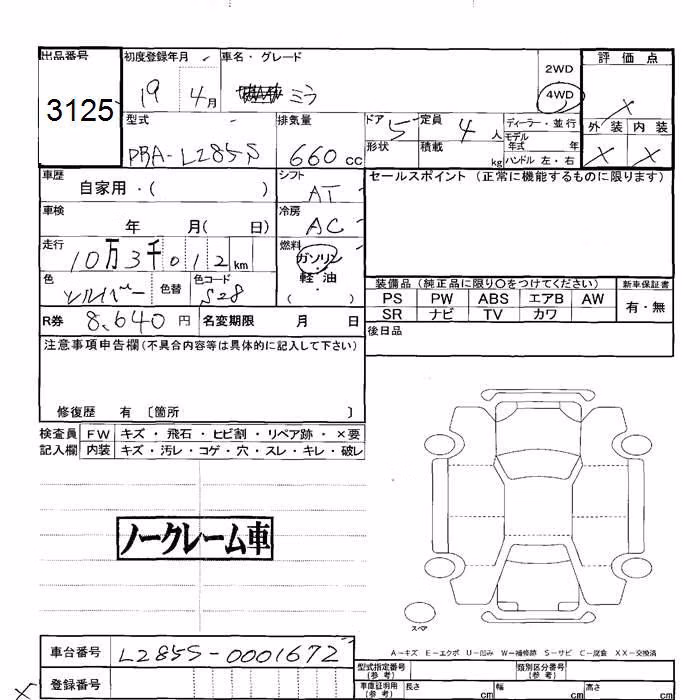 出品番号
3125
初度登録年月
19 4月
車名・グレード
ミラ
2WD
4WD
評価点
X
外装 内装
X X
型式
DBA-L285S
排気量
660cc
ドア 5
形状
定員 4人
積載 kg
ディーラー・並行
モデル年式 年
ハンドル 左・右
車歴
自家用・( )
シフト
AT
セールスポイント (正常に機能するものに限ります)
車検
年 月( 日)
冷房
AC
走行
10万3千012km
燃料
ガソリン
軽・油
( )
色
シルバー
色替
色コード
S28
装備品 (純正品に限り○をつけてください)
新車保証書
PS PW ABS エアB AW
SR ナビ TV カワ
有・無
R券 8,640円
名変期限 月 日
後日品
注意事項申告欄(不具合内容等は具体的に記入して下さい)
修復歴 有 〔箇所 〕
検査員記入欄
FW キズ・飛石・ヒビ割・リペア跡・×要
内装 キズ・汚レ・コゲ・穴・スレ・キレ・破レ
ノークレーム車
スペア
A-キズ E-エクボ U-凹み W-補修跡 S-サビ C-腐食 XX-交換済
車台番号 L285S-0001672
登録番号
型式指定番号(参考)
類別区分番号(参考)
車庫証明用(参考) 長さ cm 幅 cm 高さ cm
X